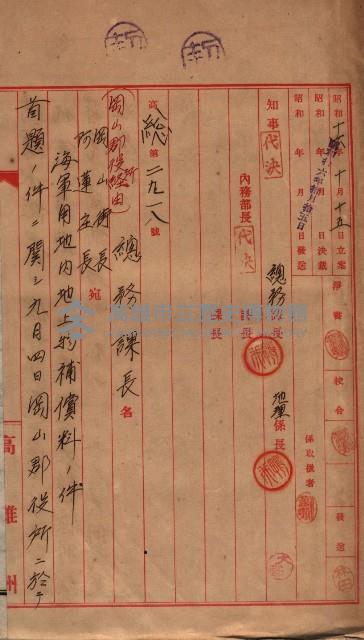 昭和十六年十月十五日立案
昭和 年 月 日決裁
昭和 年 月 日發送
淨書
校合
發送
係取扱者
知事 代決
內務部長 代決
總務課長
課長
課長
地理係長
高總第二九一八號
岡山郡役所經由
總務課長名
岡山街長
阿蓮庄長 宛
海軍用地內地物補償料ノ件
首題ノ件ニ關シ九月四日岡山郡役所ニ於テ
高雄州
高雄市立歷史博物館